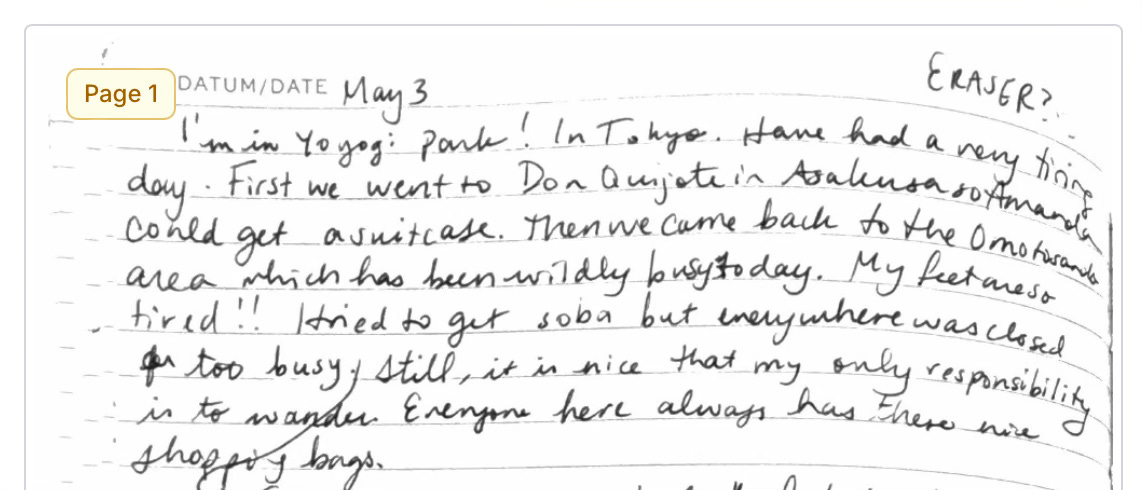 ERASER?
Page 1 DATUM/DATE May 3
I'm in Yoyogi Park! In Tokyo. Have had a very tiring
day. First we went to Don Quijote in Asakusa so Amanda
could get a suitcase. Then we came back to the Omotosando
area which has been wildly busy today. My feet are so
tired!! I tried to get soba but everywhere was closed
or too busy; still, it is nice that my only responsibility
is to wander. Everyone here always has these nice
shopping bags.